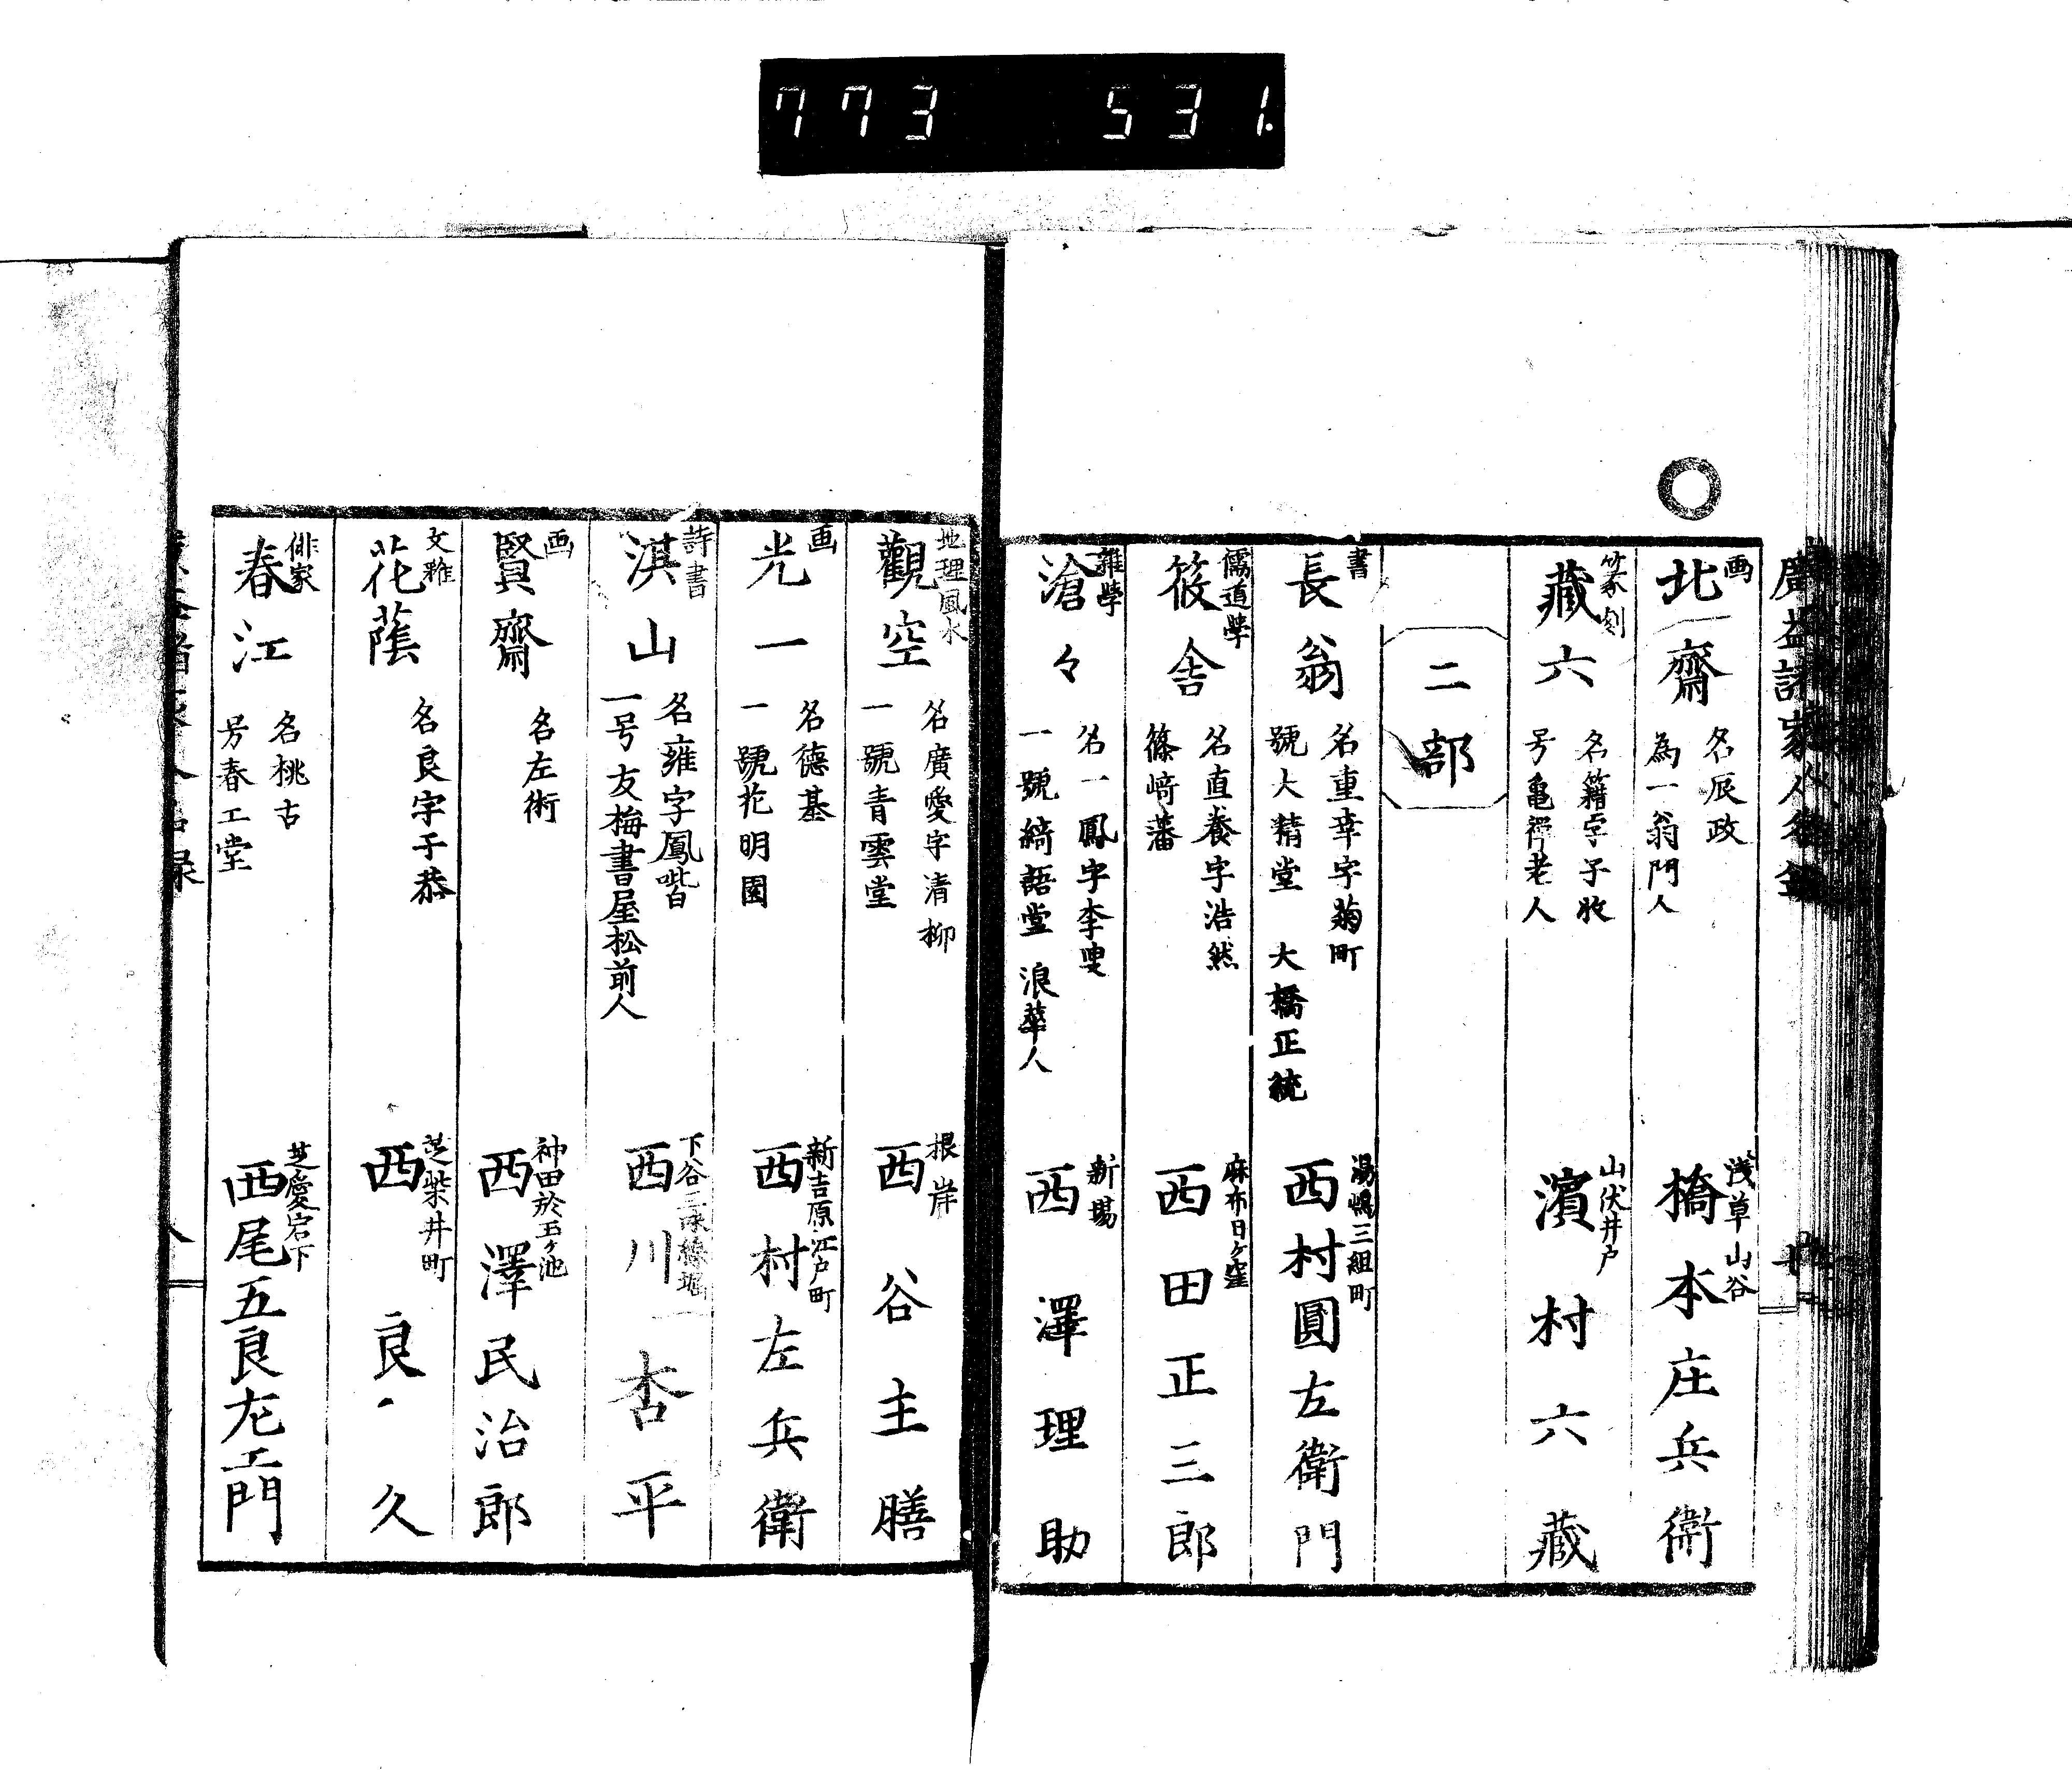 773 531.
廣益諸家人名録
画
北齋
名辰政
為一翁門人
浅草山谷
橋本庄兵衛
篆刻
藏六
名籍字子收
号亀禪老人
山伏井戸
濱村六藏
二部
書
長翁
名重幸字菊町
號大精堂 大橋正統
湯嶋三組町
西村圓左衛門
儒道学
筱舎
名直養字浩然
篠﨑藩
麻布日ヶ窪
西田正三郎
雜学
滄々
名一鳳字李叟
一號綺語堂 浪華人
新場
西澤理助
地理風水
觀空
名廣愛字清柳
一號青雲堂
根岸
西谷主膳
画
光一
名德基
一號花明園
新吉原江戸町
西村左兵衛
詩書
淇山
名雍字鳳喈
一号友梅書屋松前人
下谷三味線堀
西川杏平
画
賢齋
名左術
神田於玉ヶ池
西澤民治郎
文雅
花蔭
名良字子恭
芝柴井町
西良久
俳家
春江
名桃古
号春工堂
芝愛宕下
西尾五良左エ門